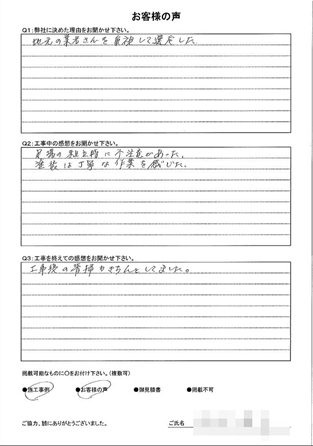 お客様の声
Q1:弊社に決めた理由をお聞かせ下さい。
地元の業者さんを重視して選定した
Q2:工事中の感想をお聞かせ下さい。
足場の組立時に不注意があった。
塗装は丁寧な作業を感じた。
Q3:工事を終えての感想をお聞かせ下さい。
工事後の清掃もきちんとしてました。
掲載可能なものに〇をお付け下さい。(複数可)
●施工事例 ●お客様の声 ●御見積書 ●掲載不可
ご協力、誠にありがとうございました。 ご氏名